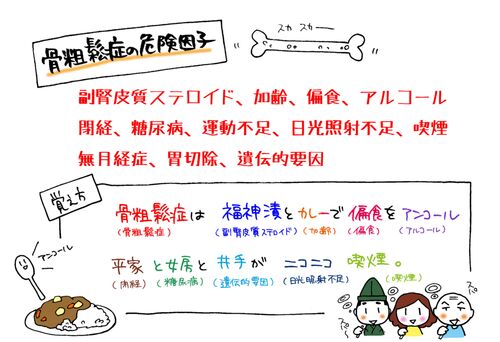 骨粗鬆症の危険因子
スカ スカ…
副腎皮質ステロイド、加齢、偏食、アルコール
閉経、糖尿病、運動不足、日光照射不足、喫煙
無月経症、胃切除、遺伝的要因
覚え方
アンコール
骨粗鬆症は 福神漬とカレーで偏食をアンコール
(骨粗鬆症) (副腎皮質ステロイド) (加齢) (偏食) (アルコール)
平家と女房と井手がニコニコ喫煙。
(閉経) (糖尿病) (遺伝的要因) (日光照射不足) (喫煙)